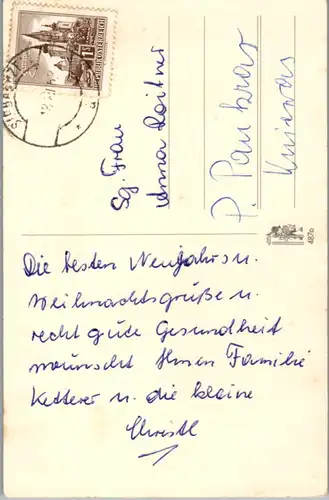 REPUBLIK ÖSTERREICH
Sg. Frau
Anna Loitner
P. Pankraz
4876
Die besten Neujahrs u.
Weihnachtsgrüße u.
recht gute Gesundheit
wünscht Ihnen Familie
Ketterer u. die kleine
Christl